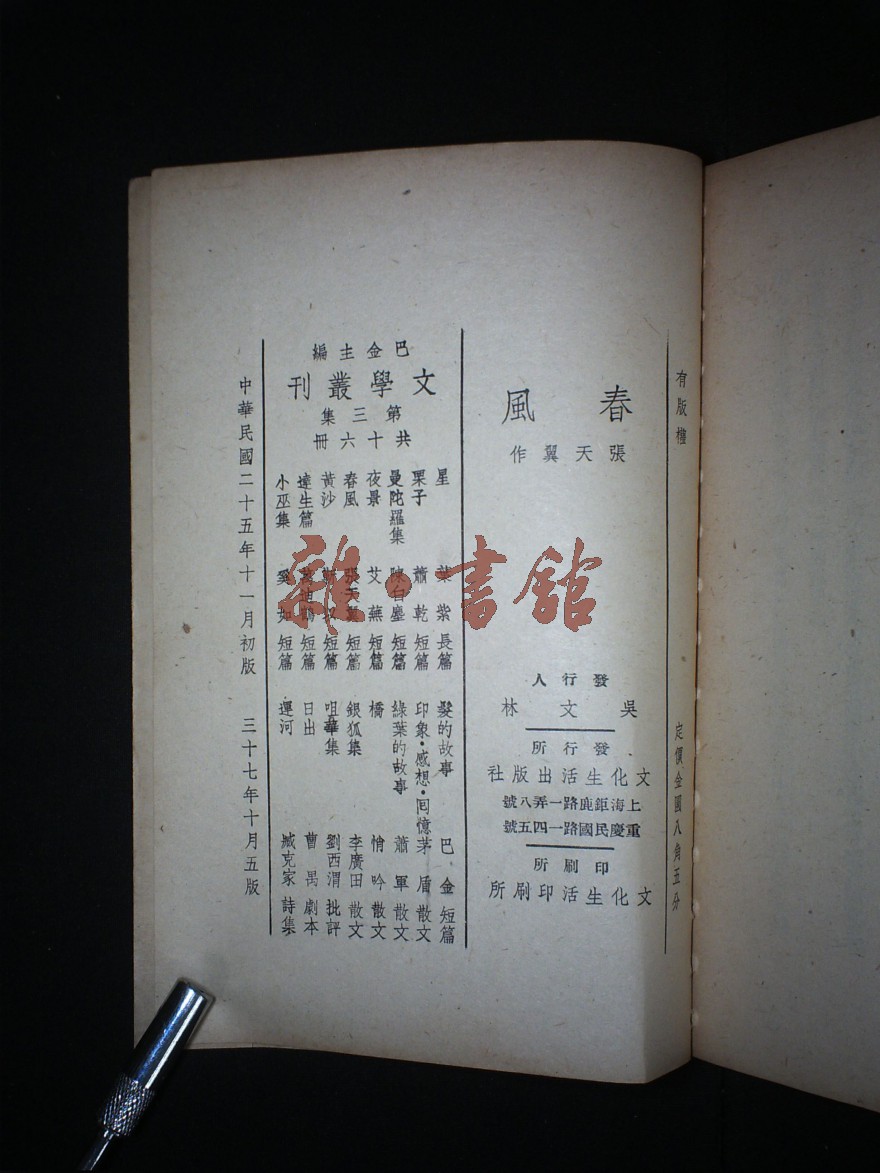 有版權
定價金圓八角五分
春風
張天翼作
發行人
吳文林
發行所
文化生活出版社
上海鉅鹿路一弄八號
重慶民國路一四五號
印刷所
文化生活印刷所
巴金主編
文學叢刊
第三集
共十六冊
星 葉紫 長篇
栗子 蕭乾 短篇
曼陀羅集 陳白塵 短篇
夜景 艾蕪 短篇
春風 張天翼 短篇
黃沙 短篇
達生篇 短篇
小巫集 短篇
髮的故事 巴金 短篇
印象·感想·回憶 茅盾 散文
綠葉的故事 蕭軍 散文
橋 悄吟 散文
銀狐集 李廣田 散文
咀華集 劉西渭 批評
日出 曹禺 劇本
運河 臧克家 詩集
中華民國二十五年十一月初版
三十七年十月五版
雜·書館